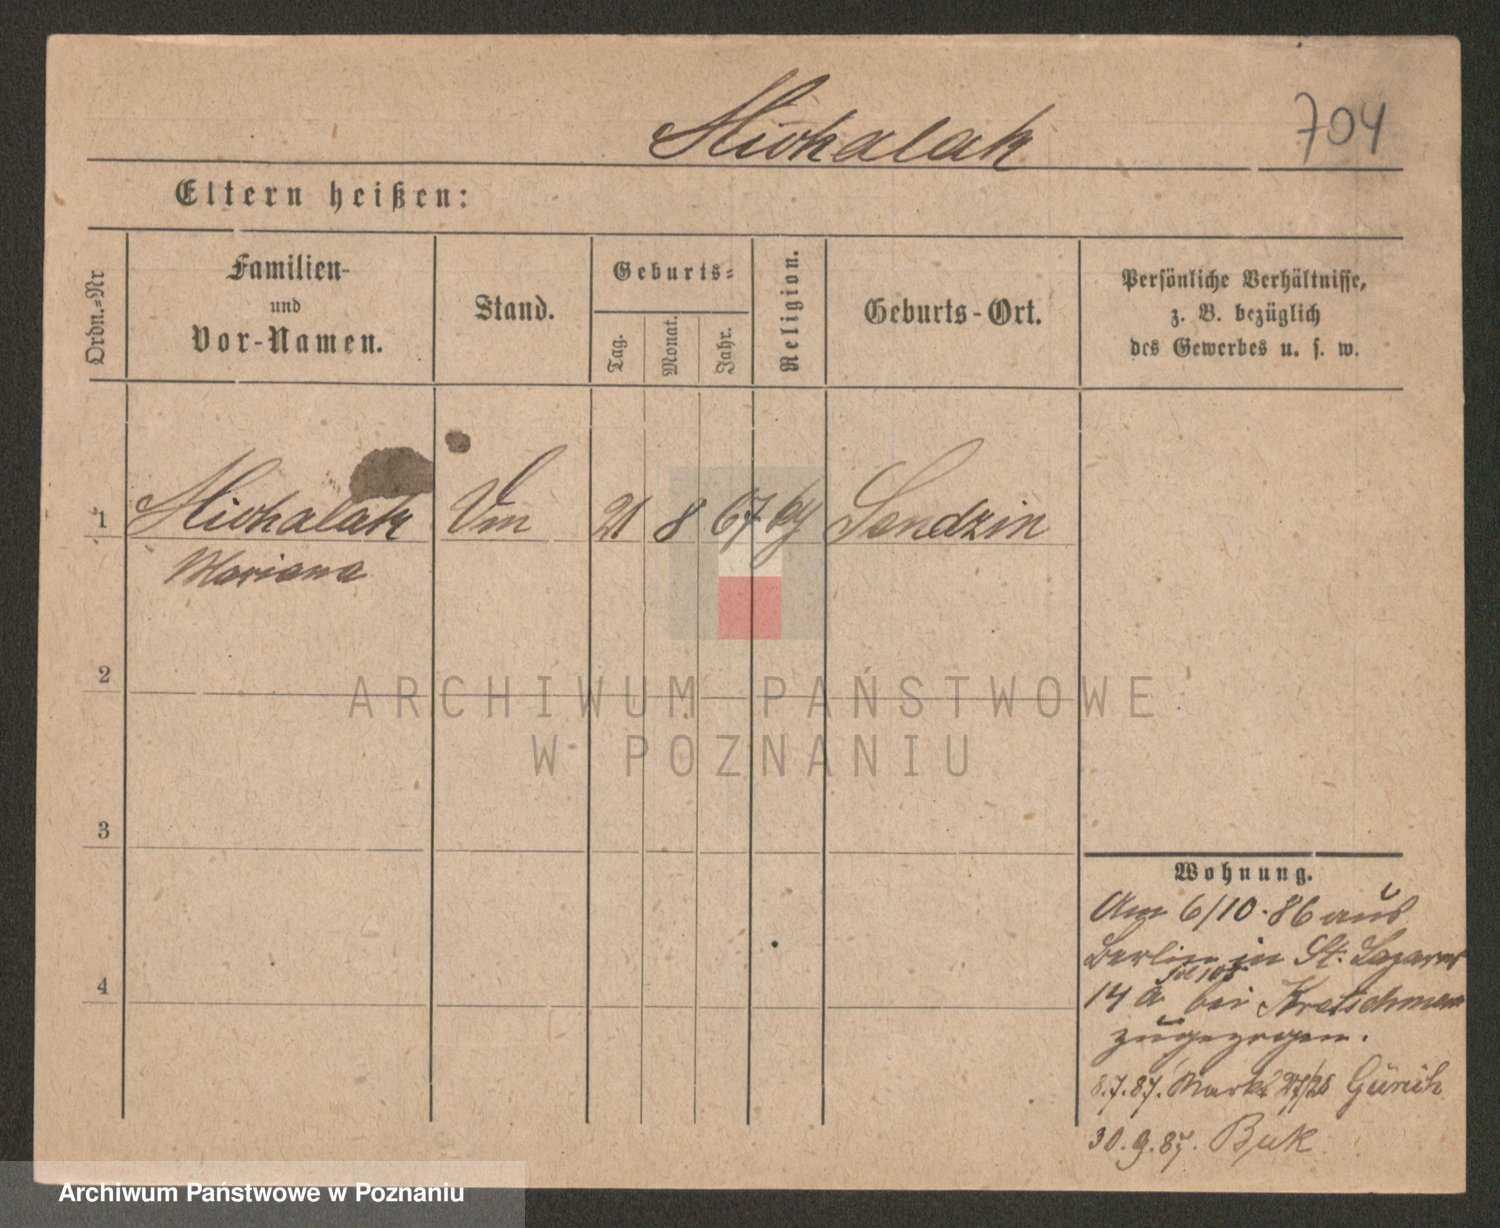 Michalak
704
Eltern heißen:
Ordn.-Nr
Familien-
und
Vor-Namen.
Stand.
Geburts-
Tag.
Monat.
Jahr.
Religion.
Geburts-Ort.
Persönliche Verhältnisse,
z. B. bezüglich
des Gewerbes u. s. w.
1 Michalak 21 8 67 Sendzin
Mariana
2
3
4
ARCHIWUM PAŃSTWOWE
W POZNANIU
Wohnung.
Am 6/10. 86 aus
Berlin in St. Lazarus
14 a bei Kretschmer
zugezogen.
8.7.87. Markt 27/28
30.9.87. Buk
Archiwum Państwowe w Poznaniu